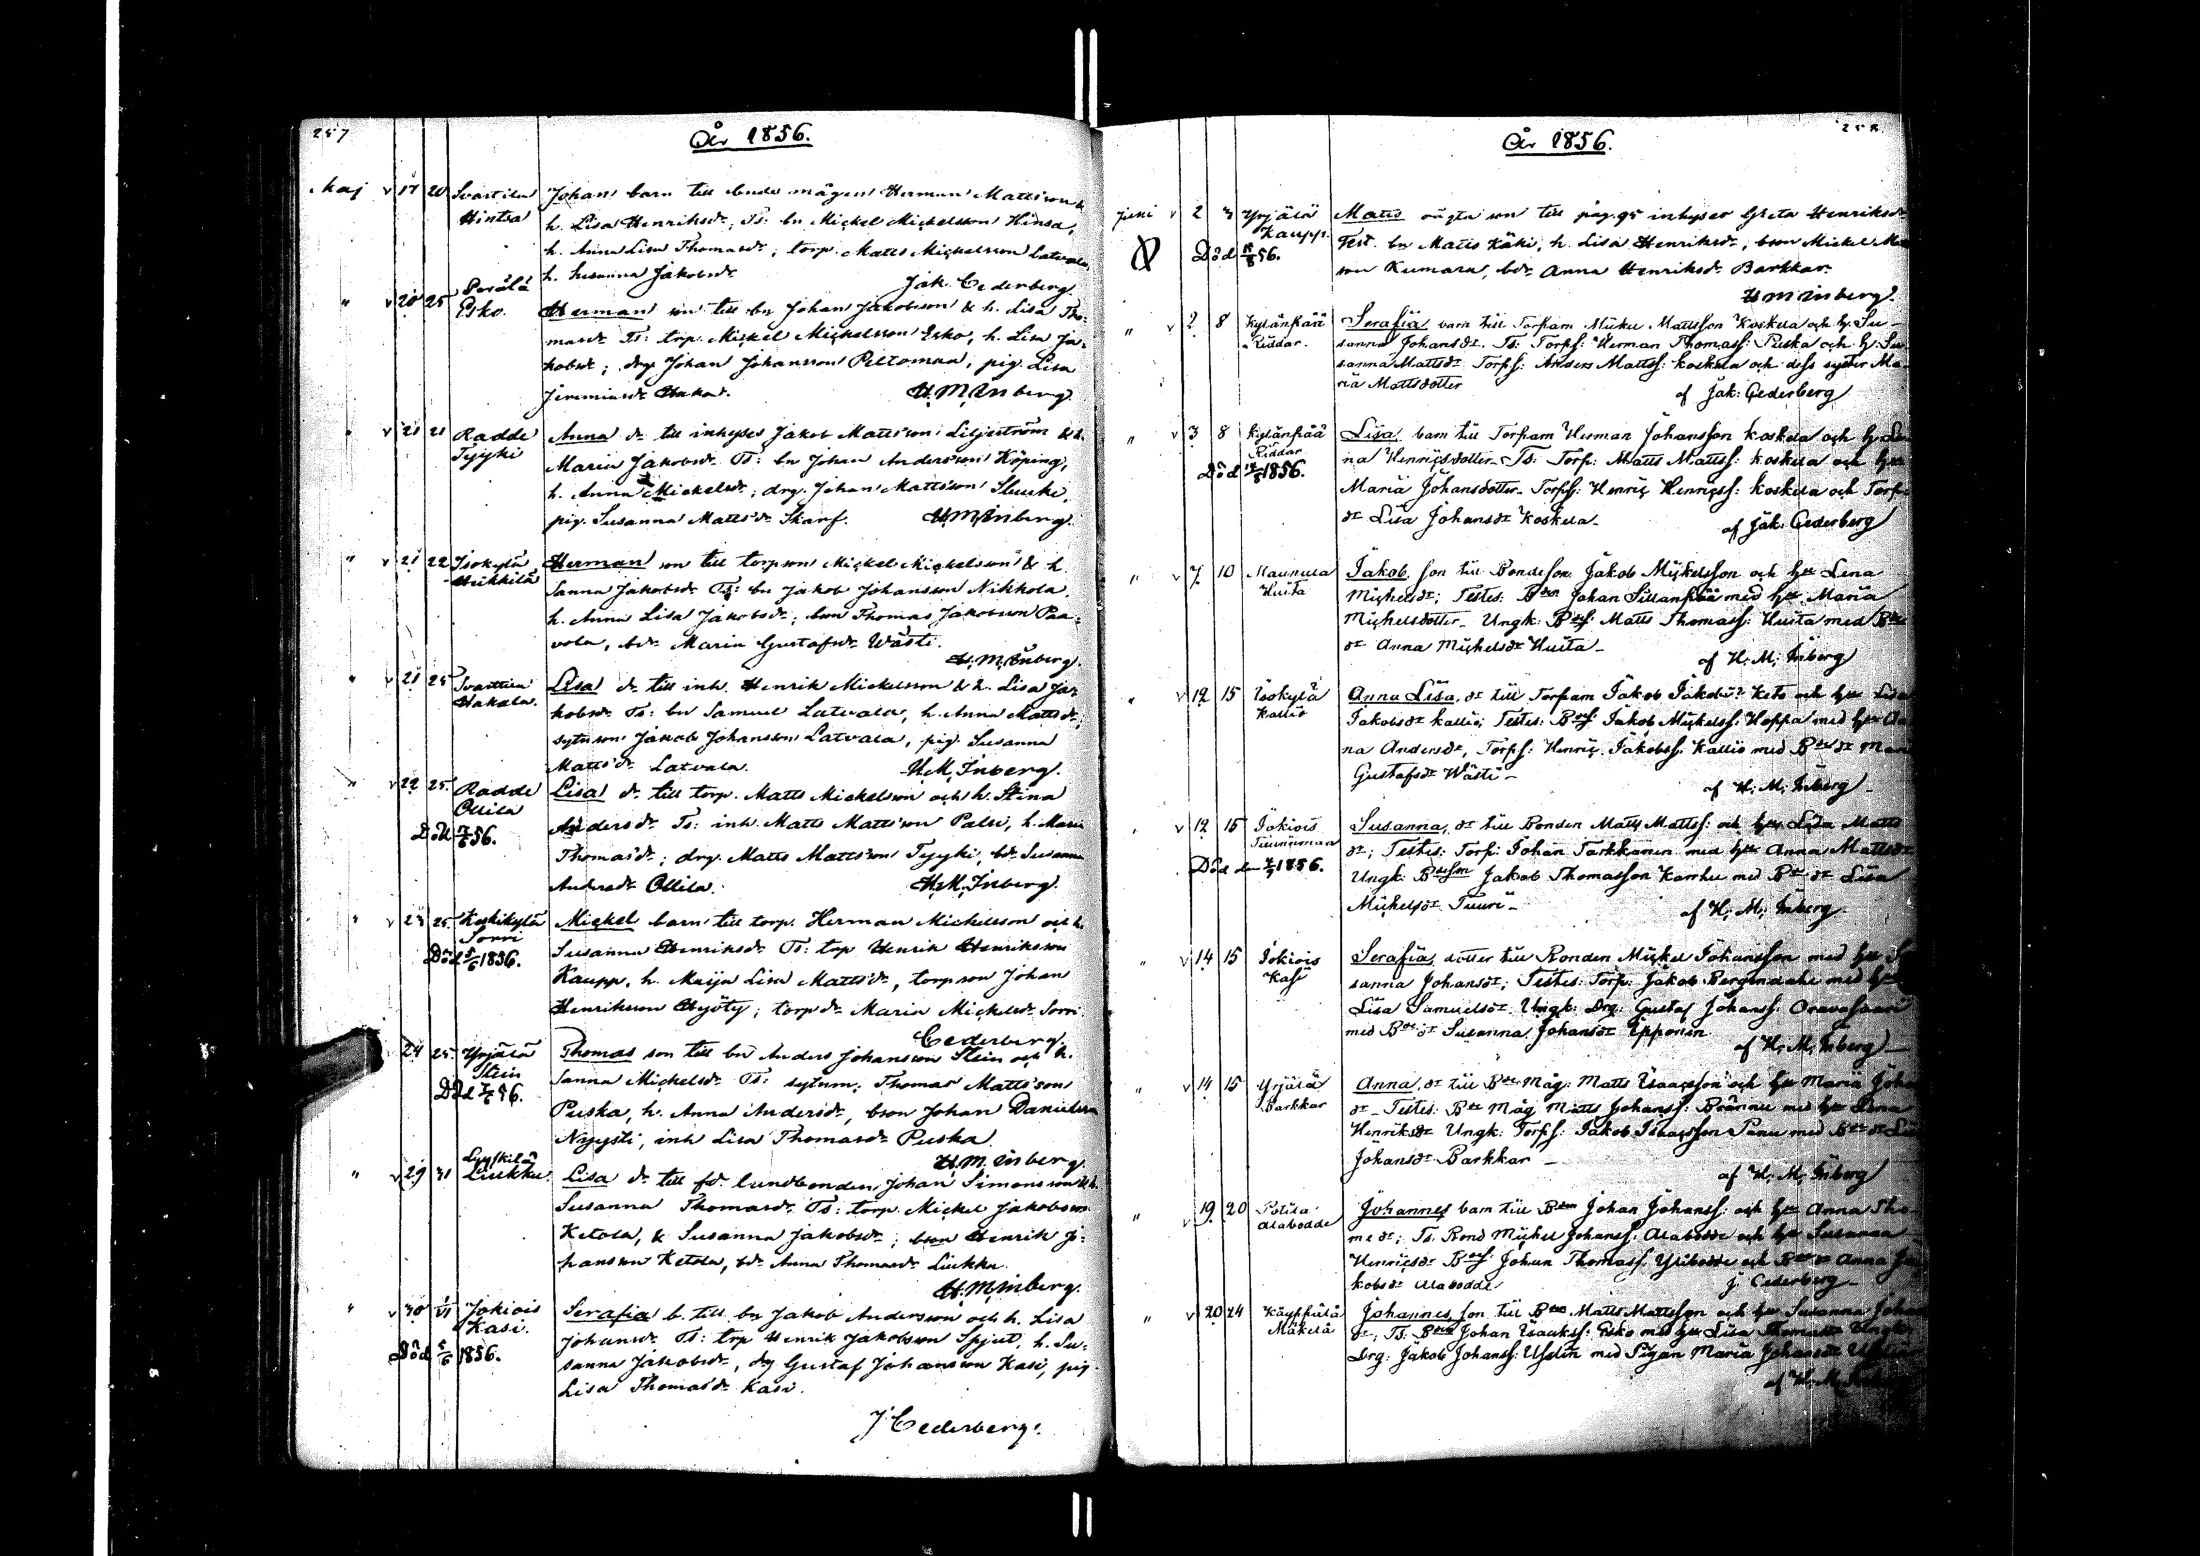 257
År 1856.
Maj v 17 20 Svartila Johan barn till bonde mågen Herman Mattsson &
Hintsa h. Lisa Henriksdr, Ts: bn Mickel Mickelsson Hinsa,
h. Anna Lisa Thomasdr; torp. Matts Mickelsson Latvala,
h. Susanna Jakobsdr Jak. Cederberg.
" v 20 25 Perälä Esko. Herman son till bn Johan Jakobsson & h. Lisa Tho-
masdr Ts: torp. Mickel Mickelsson Esko, h. Lisa Ja-
kobsdr; drg Johan Johansson Peltomaa, pig. Lisa
Jeremiasdr H. M. Inberg.
" v 21 21 Radde Anna dr till inhyses Jakob Mattsson Liljeström & h.
Tyyki Maria Jakobsdr Ts: bn Johan Andersson Köping,
h. Anna Mickelsdr; drg. Johan Mattsson
pig. Susanna Mattsdr Skarf. H. M. Inberg.
" v 21 22 Isokylä Herman son till torpson Mickel Mickelsson & h.
Heikkilä Sanna Jakobsdr Ts: bn Jakob Johansson Nikkola,
h. Anna Lisa Jakobsdr; bson Thomas Jakobsson Paa-
vola, bdr Maria Gustafsdr Wästi.
H. M. Inberg.
" v 21 25 Svartila Lisa dr till inh. Henrik Mickelsson & h. Lisa Ja-
Hakala. kobsdr Ts: bn Samuel Latvala, h. Anna Mattsdr;
sytnson Jakob Johansson Latvala, pig. Susanna
Mattsdr Latvala. H. M. Inberg.
" v 22 25. Radde Lisa dr till torp. Matts Mickelsson och h. Stina
Ollila Andersdr Ts: inh. Matts Mattsson Palu, h. Maria
Död 56. Thomasdr; drg. Matts Mattsson Tyyki, bdr Susanna
Andersdr Ollila. H. M. Inberg.
" v 23 25. Koskikylä Mickel barn till torp. Herman Mickelsson och h.
Sorri Susanna Henriksdr Ts: torp Henrik Henriksson
Död 5/6 1856. Kaupp, h. Maija Lisa Mattsdr, torpson Johan
Henriksson Hyöty; torpdr Maria Mickelsdr Sorri
Cederberg.
24 25. Yrjälä Thomas son till bn Anders Johansson Stein och h.
Stein Sanna Mickelsdr Ts: sytnm. Thomas Mattsson
Död 56. Puska, h. Anna Andersdr, bson Johan Danielsson
Nyysti, inh Lisa Thomasdr Puska.
H. M. Inberg.
" v 29 31 Lyyskilä Liukku. Lisa dr till fd. lundbonden Johan Simonsson & h.
Susanna Thomasdr Ts: torp. Mickel Jakobsson
Ketola, & Susanna Jakobsdr; bson Henrik Jo-
hansson Ketola, bdr Anna Thomasdr Liukku.
H. M. Inberg.
" v 30 1/VI Jokiois Serafia b. till bn Jakob Andersson och h. Lisa
Kasi. Johansdr Ts: torp Henrik Jakobsson Spjut, h. Su-
Död 5/6 1856. sanna Jakobsdr, dg Gustaf Johansson Kasi, pig.
Lisa Thomasdr Kasi.
J Cederberg.
258
År 1856.
Juni v 2 3 Yrjälä Matts oägta son till pag. 95 inhyses Greta Henriksdr
Kaupp. Test. bn Matts Käki, h. Lisa Henriksdr, bson Mickel
Död 56. son Kumara, bdr Anna Henriksdr Barkkar.
H M Inberg.
" v 2 8 Kylänpää Serafia, barn till Torparn Mickel Mattsson Koskela och h. Su-
Riddar. sanna Johansdr. Ts. Torpf: Herman Thomasf: Puska och h:
sanna Mattsdr Torpf: Anders Mattsf: Koskela och dess syster Ma-
ria Mattsdotter af Jak: Cederberg
" v 3 8 Kylänpää Lisa, barn till Torparn Herman Johansson Koskela och h:
Riddar na Henricsdotter Ts: Torp: Matts Mattsf: Koskela och
Död 1856. Maria Johansdotter Torpf: Henric Henricsf: Koskela och Torp
dr Lisa Johansdr Koskela. af Jak: Cederberg
" v 7 10 Maunula Jakob, son till Bondeson Jakob Mickelsson och Lena
Huita Michelsdr; Testes: Johan Sillanpää med Maria
Michelsdotter Ungk: Matts Thomasf: Huita med
dr Anna Michelsdr Huita af H. M. Inberg
" v 12 15 Isokylä Anna Lisa, dr till Torparn Jakob Keto och Lisa
Kallio Jakobsdr Kallio; Testes: Jakob Mickelsf: Hoppa med
na Andersdr, Torpf: Henric Jakobsf. Kallio med
Gustafsdr Wästi af H. M. Inberg
" v 12 15 Jokiois Susanna, dr till Bonden Matts Mattsf: och Lisa Matts
dr; Testes: Torp: Johan Tarkkanen med Anna Mattsdr
Död den 1856. Ungk: Jakob Thomasson Karhu med Lisa
Michelsdr Tuuri af H. M. Inberg.
" v 14 15 Jokiois Serafia, dotter till Bonden Mickel Johansson med
Kasi sanna Johansdr; Testes: Torp: Jakob med
Lisa Samuelsdr Ungk: Drg: Gustaf Johansf:
med Susanna Johansdr Epponen
af H. M. Inberg
" v 14 15 Yrjälä Anna, dr till Måg: Matts Isaacsson och Maria
Barkkar dr Testes: Måg Matts Johansf: Brännu med Lena
Henriksdr Ungk: Torpf: Jakob Isaacsson Panu med
Johansdr Barkkar
af H. M. Inberg
" v 19. 20 Potila Johannes barn till Johan Johansf: och Anna
Alabodde Ts. Bond Michel Johansf: Alabodde och Susanna
Henricsdr Johan Thomasf: Ylibodde och Anna Ja
kobsdr Alabodde J Cederberg
" v 20 24 Käyppälä Johannes, son till Matts Mattsson och Susanna
Mäkelä dr; Ts. Johan Isaaksf: Esko med Lisa
Drg: Jakob Johansf: med Pigan Maria Johansdr
af H. M.